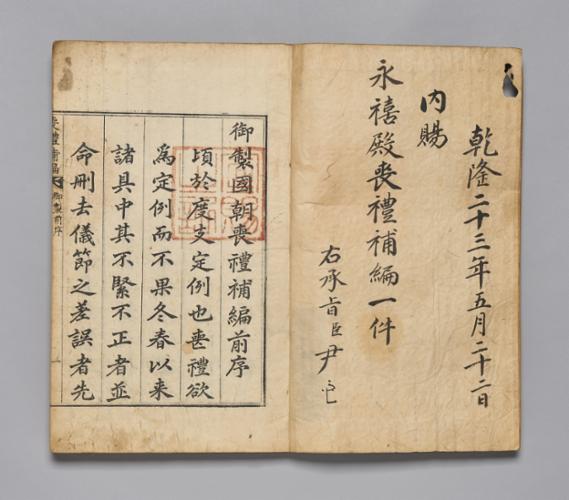 乾隆二十三年五月二十二日
內賜
永禧殿喪禮補編一件
右承旨臣尹
御製國朝喪禮補編前序
頃於度支定例也喪禮欲
爲定例而不果冬春以來
諸具中其不緊不正者並
命刪去儀節之差誤者先
御製前序